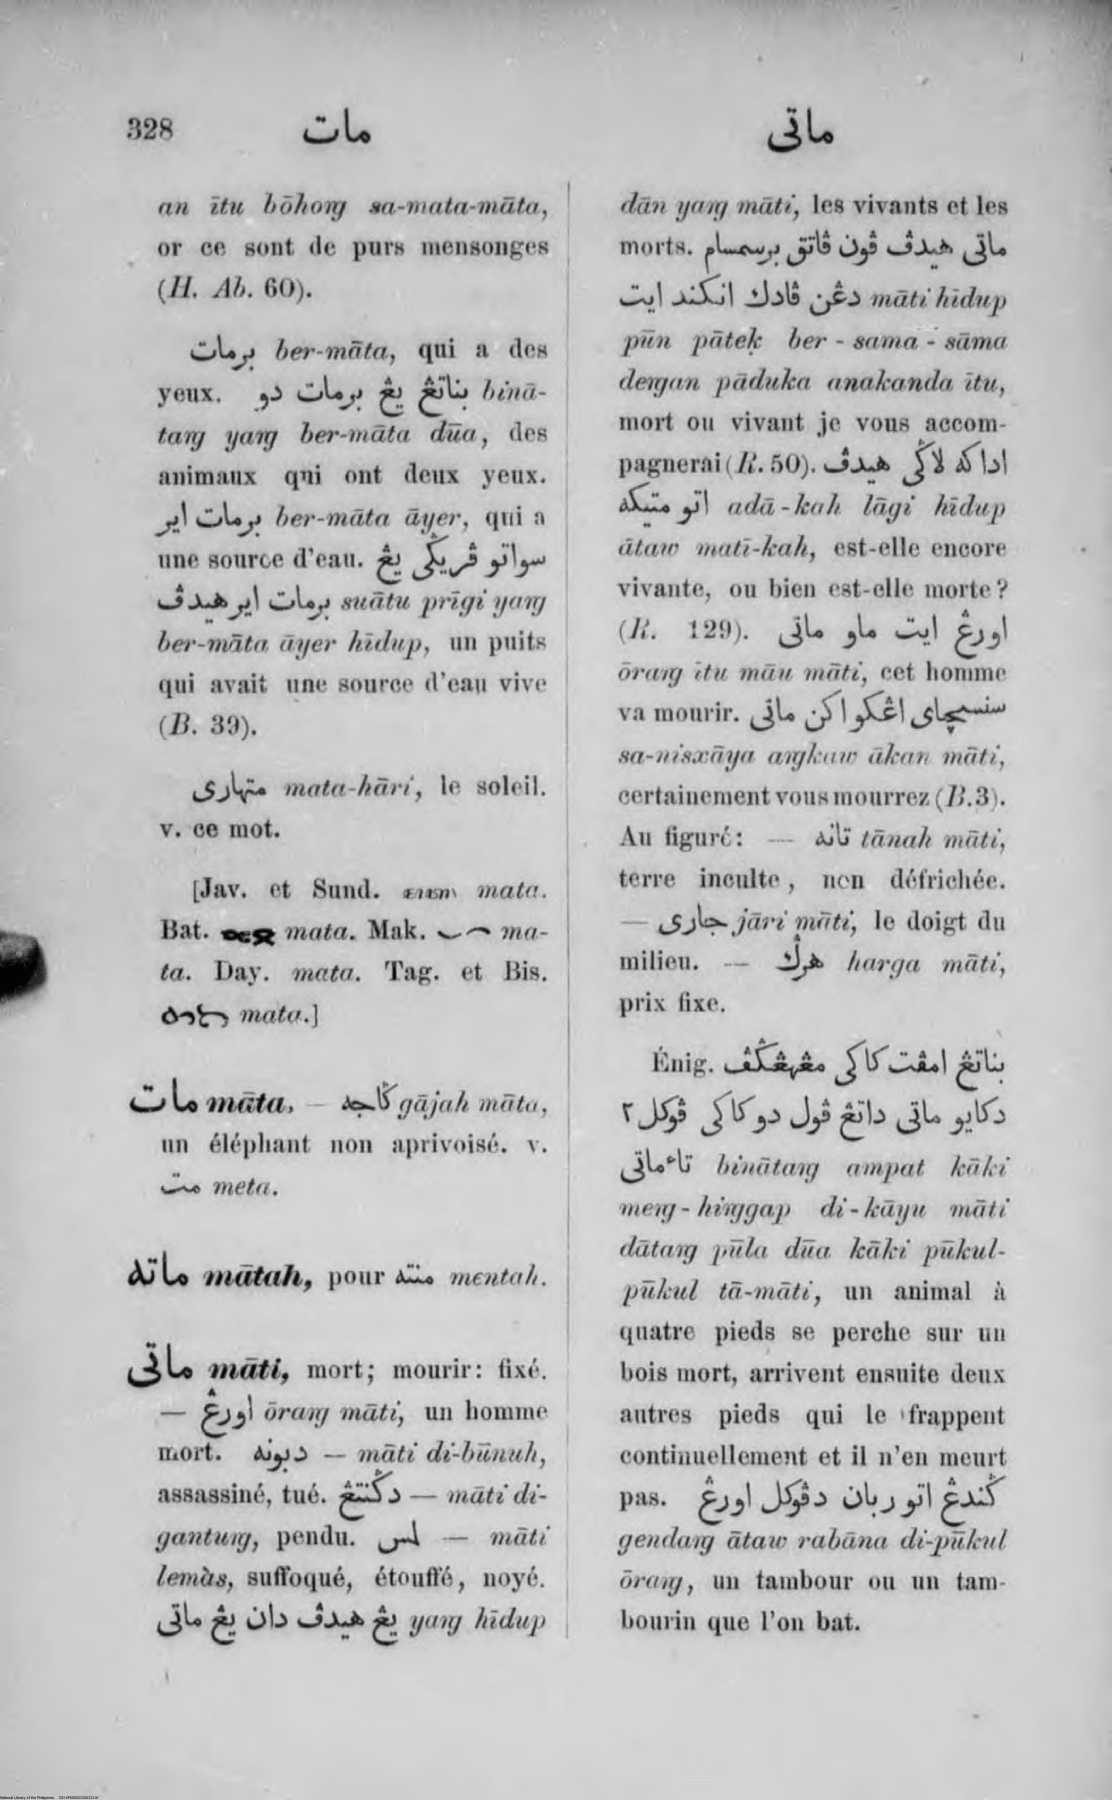 328 مات ماتي
an ītu bōhoꞑ sa-mata-māta,
or ce sont de purs mensonges
(H. Ab. 60).
برمات ber-māta, qui a des
yeux. بناتڠ يڠ برمات دو binā-
taꞑ yaꞑ ber-māta dūa, des
animaux qui ont deux yeux.
برمات اير ber-māta āyer, qui a
une source d'eau. سواتو ڤريڬي يڠ
برمات اير هيدڤ suātu prīgi yaꞑ
ber-māta āyer hīdup, un puits
qui avait une source d'eau vive
(B. 39).
متهاري mata-hāri, le soleil.
v. ce mot.
[Jav. et Sund. mata.
Bat. mata. Mak. ma-
ta. Day. mata. Tag. et Bis.
mata.]
مات māta. — ڬاجه gājah māta,
un éléphant non aprivoisé. v.
مت meta.
ماته mātah, pour منته mentah.
ماتي māti, mort; mourir: fixé.
— اورڠ ōraꞑ māti, un homme
mort. دبونه — māti di-būnuh,
assassiné, tué. دڬنتڠ — māti di-
gantuꞑ, pendu. لمس — māti
lemàs, suffoqué, étouffé, noyé.
يڠ هيدڤ دان يڠ ماتي yaꞑ hīdup
dān yaꞑ māti, les vivants et les
morts. ماتي هيدڤ ڤون ڤاتق برسمسام
دڠن ڤادك انكند ايت māti hīdup
pūn pāteḳ ber-sama-sāma
deꞑan pāduka anakanda ītu,
mort ou vivant je vous accom-
pagnerai (R. 50). اداكه لاڬي هيدڤ
اتو متيكه adā-kah lāgi hīdup
ātaw matī-kah, est-elle encore
vivante, ou bien est-elle morte?
(R. 129). اورڠ ايت ماو ماتي
ōraꞑ ītu māu māti, cet homme
va mourir. سنسيچاي اڠكو اكن ماتي
sa-nisxāya aꞑkaw ākan māti,
certainement vous mourrez (B. 3).
Au figuré: — تانه tānah māti,
terre inculte, non défrichée.
— جاري jāri māti, le doigt du
milieu. — هرڬ harga māti,
prix fixe.
Énig. بناتڠ امڤت كاكي مڠهڠڬڤ
دكايو ماتي داتڠ ڤول دو كاكي ڤوكل ٢
تاءماتي binātaꞑ ampat kāki
meꞑ-hiꞑgap di-kāyu māti
dātaꞑ pūla dūa kāki pūkul-
pūkul tā-māti, un animal à
quatre pieds se perche sur un
bois mort, arrivent ensuite deux
autres pieds qui le frappent
continuellement et il n'en meurt
pas. ڬندڠ اتو ربان دڤوكل اورڠ
gendaꞑ ātaw rabāna di-pūkul
ōraꞑ, un tambour ou un tam-
bourin que l'on bat.